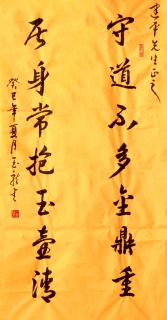 建平先生正之
守道不多金鼎重
居身常抱玉壶清
癸巳年夏月玉龙书